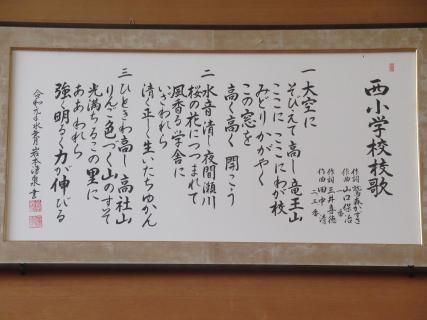 西小学校校歌
作詞 鷲森かずき
作曲 山口保治
一番
作詞 三井喜徳
作曲 田中清
二・三番
一 大空に
そびえて高し 竜王山
ここに ここにわが校
みどり かがやく
この窓を
高く高く 開こう
二 水音清し 夜間瀬川
桜の花につつまれて
風香る学舎に
いざわれら
清く正しく生いたちゆかん
三 ひときわ高し 高社山
りんご色づく山のすそ
光満ちるこの里に
ああわれら
強く明るく力が伸びる
令和元年 岩本